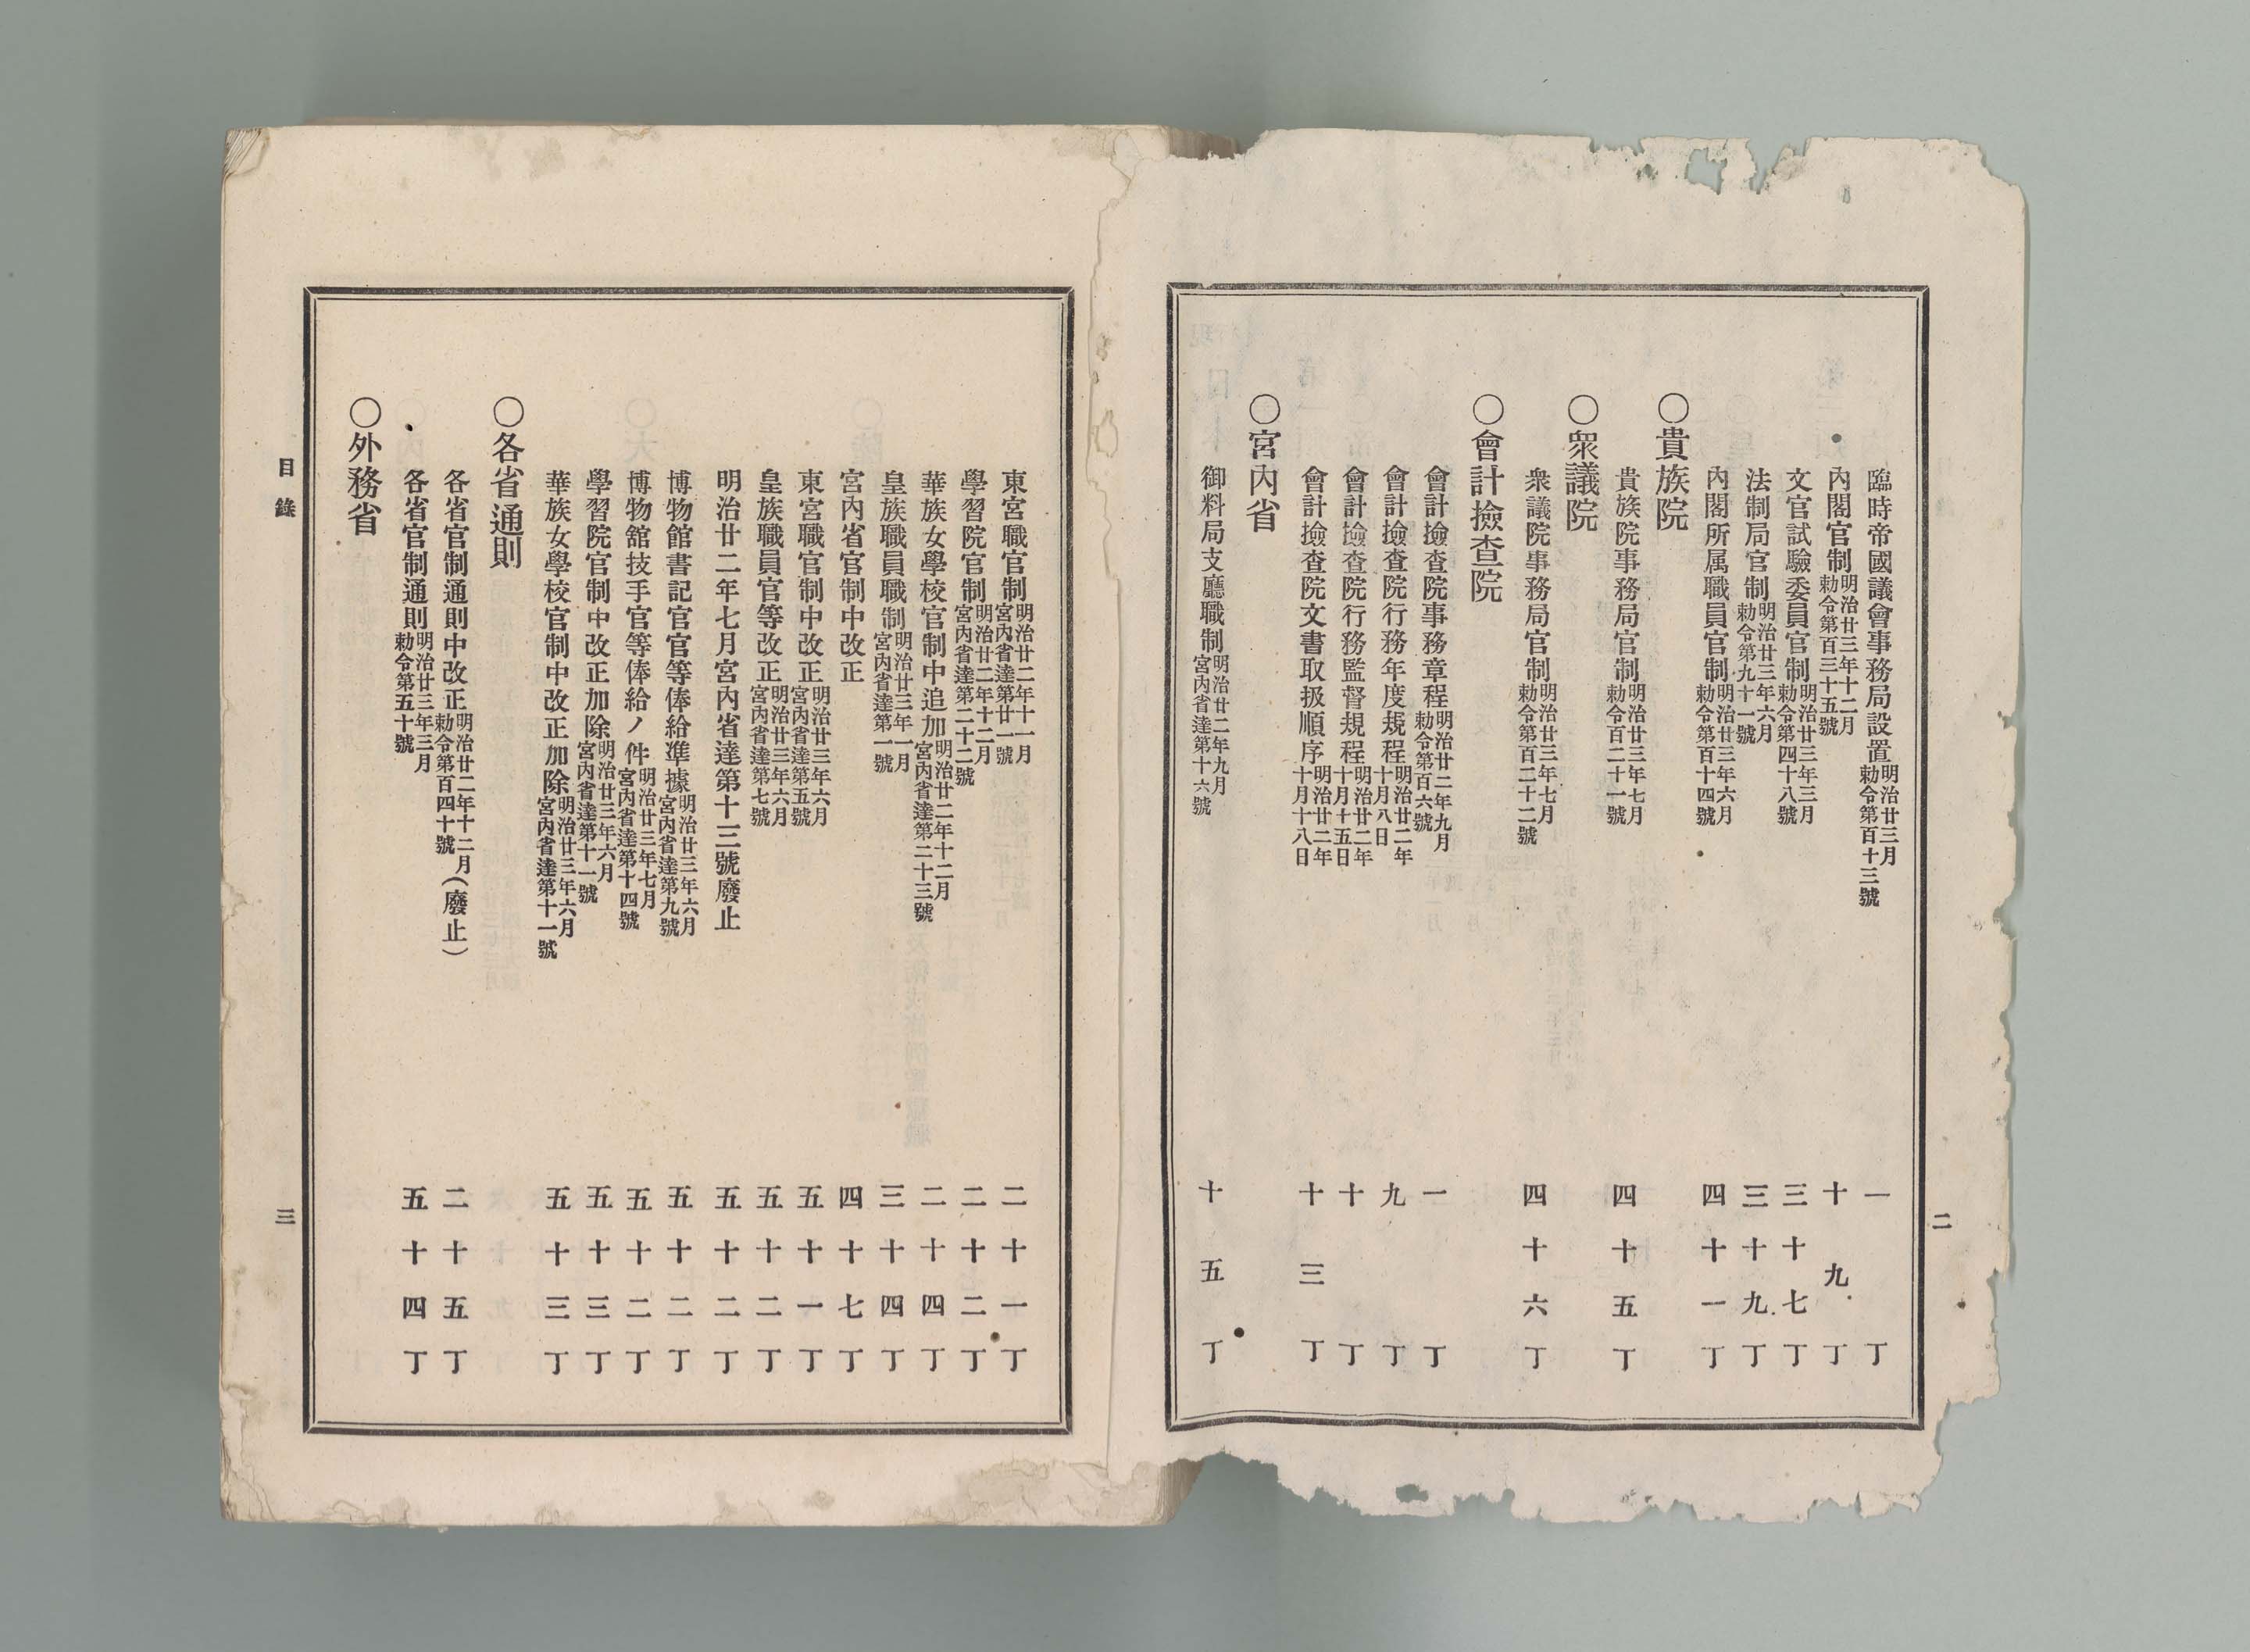 臨時帝國議會事務局設置明治廿三月勅令第百十三號 一丁
內閣官制明治廿三年十二月勅令第百三十五號 十九丁
文官試驗委員官制明治廿三年三月勅令第四十八號 三十七丁
法制局官制明治廿三年六月勅令第九十一號 三十九丁
內閣所属職員官制明治廿三年六月勅令第百十四號 四十一丁
〇貴族院
貴族院事務局官制明治廿三年七月勅令百二十一號 四十五丁
〇衆議院
衆議院事務局官制明治廿三年七月勅令第百二十二號 四十六丁
〇會計撿査院
會計撿査院事務章程明治廿二年九月勅令第百六號 一丁
會計撿査院行務年度規程明治廿二年十月八日 九丁
會計撿査院行務監督規程明治廿二年十月十五日 十丁
會計撿査院文書取扱順序明治廿二年十月十八日 十三丁
〇宮內省
御料局支廳職制明治廿二年九月宮內省達第十六號 十五丁
二
東宮職官制明治廿二年十一月宮內省達第廿一號 二十一丁
學習院官制明治廿二年十二月宮內省達第二十二號 二十二丁
華族女學校官制中追加明治廿二年十二月宮內省達第二十三號 二十四丁
皇族職員職制明治廿三年一月宮內省達第一號 三十四丁
宮內省官制中改正 四十七丁
東宮職官制中改正明治廿三年六月宮內省達第五號 五十一丁
皇族職員官等改正明治廿三年六月宮內省達第七號 五十二丁
明治廿二年七月宮內省達第十三號廢止 五十二丁
博物館書記官官等俸給準據明治廿三年六月宮內省達第九號 五十二丁
博物舘技手官等俸給ノ件明治廿三年七月宮內省達第十四號 五十二丁
學習院官制中改正加除明治廿三年六月宮內省達第十一號 五十三丁
華族女學校官制中改正加除明治廿三年六月宮內省達第十一號 五十三丁
〇各省通則
各省官制通則中改正明治廿二年十二月勅令第百四十號(廢止) 二十五丁
各省官制通則明治廿三年三月勅令第五十號 五十四丁
〇外務省
目錄
三